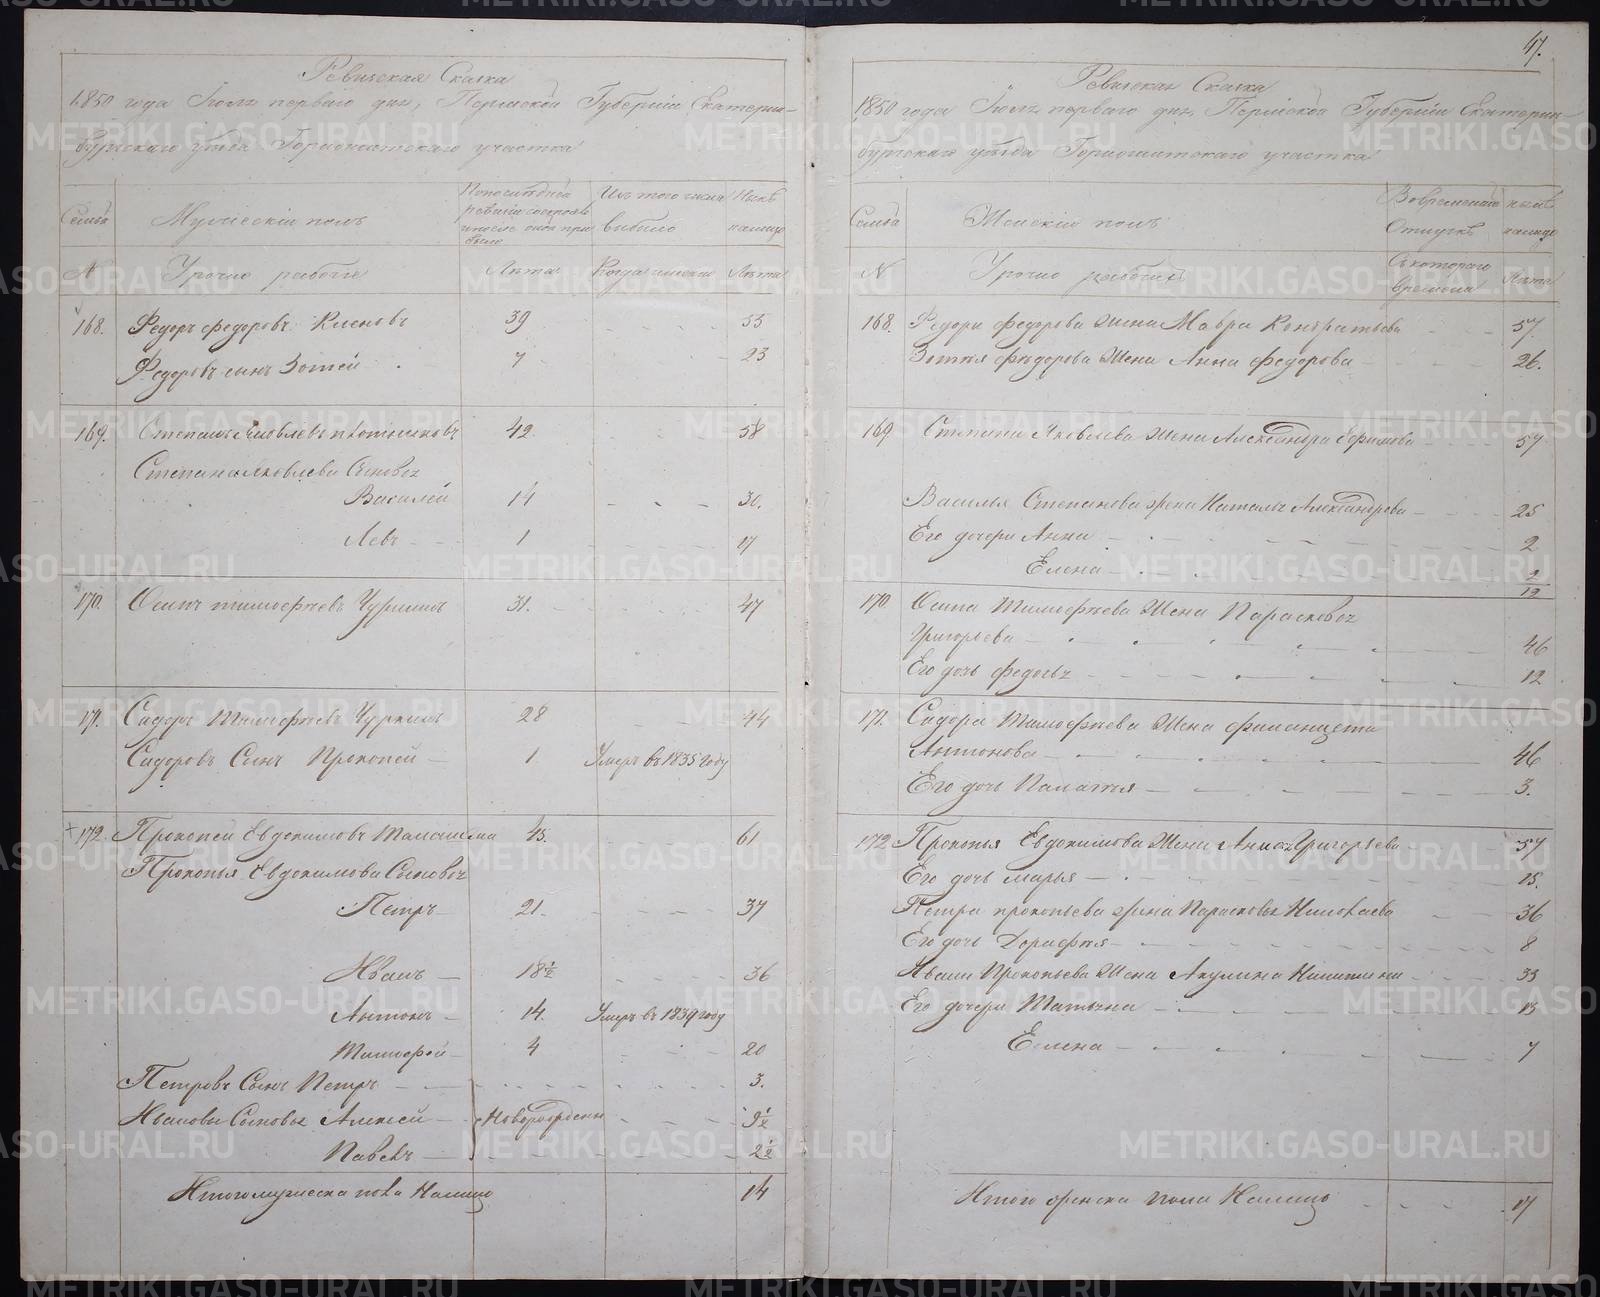 47.
Ревизская Сказка
1850 года Іюля перваго дня, Пермской Губерніи Екатерин-
бургскаго уѣзда Горнощитскаго участка
Семьа
Мужескій полъ
По последней
ревизіи состояло
и после оной при
было
Изъ того числа
выбыло
Нынѣ
налицо
№
Урочно рабочіе
Лѣта
Когда именно
Лѣта
168. Федоръ федоровъ 39 - - - 55
Федоровъ сынъ Зотей 7 - - - 23
169. Степанъ Яковлевъ плотниковъ 42 58
Степана яковлева Сыновья
Василей 14 - - - 30.
Левъ 1 17
170. Осипъ тимофѣевъ 31. 47
171. Сидоръ Тимофѣевъ 28 44
Сидоровъ Сынъ Прокопей 1 Умеръ въ 1835 году
172. Прокопей Евдокимовъ 45. 61
Прокопья Евдокимова Сыновья
Петръ 21. 37
Иванъ 18½ 36
Антонъ 14. Умеръ въ 1839 году
Тимофей 4 20
Петровъ Сынъ Петръ 3.
Ивановы Сыновья Алексей Новорожденны 9½
Павелъ 2½
Итого мужеска пола Налицо 14
Ревизская Сказка
1850 года Іюля перваго дня, Пермской Губерніи Екатерин
бургскаго уѣзда Горнощитскаго участка
Семьа
Женскій полъ
Во временной
Отлучкѣ
нынѣ
налицо
№
Урочно рабочихъ
Съ котораго
времени
Лѣта
168. Федора федорова жена Мавра Кондратьева 57.
Зотея федорова Жена Анна федорова 26.
169 Степана Яковлева Жена Александра Ефимова 57
Василья Степанова жена Наталья Александрова 25
Его дочери Анна 2
Елена 2
12
170 Осипа Тимофѣева Жена Парасковья
Григорьева 46
Его дочь федосья 12
171. Сидора Тимофѣева Жена
Антонова 46
Его дочь Палагея 3.
172 Прокопья Евдокимова Жена Анна Григорьева 57
Его дочь марья 15.
Петра прокопьева жена Парасковья Николаева 36
Его дочь Дорофѣя 8
Ивана Прокопьева Жена Акулина Никитина 35
Его дочери Татьяна 13
Елена 7
Итого женска пола Налицо 17
METRIKI.GASO-URAL.RU